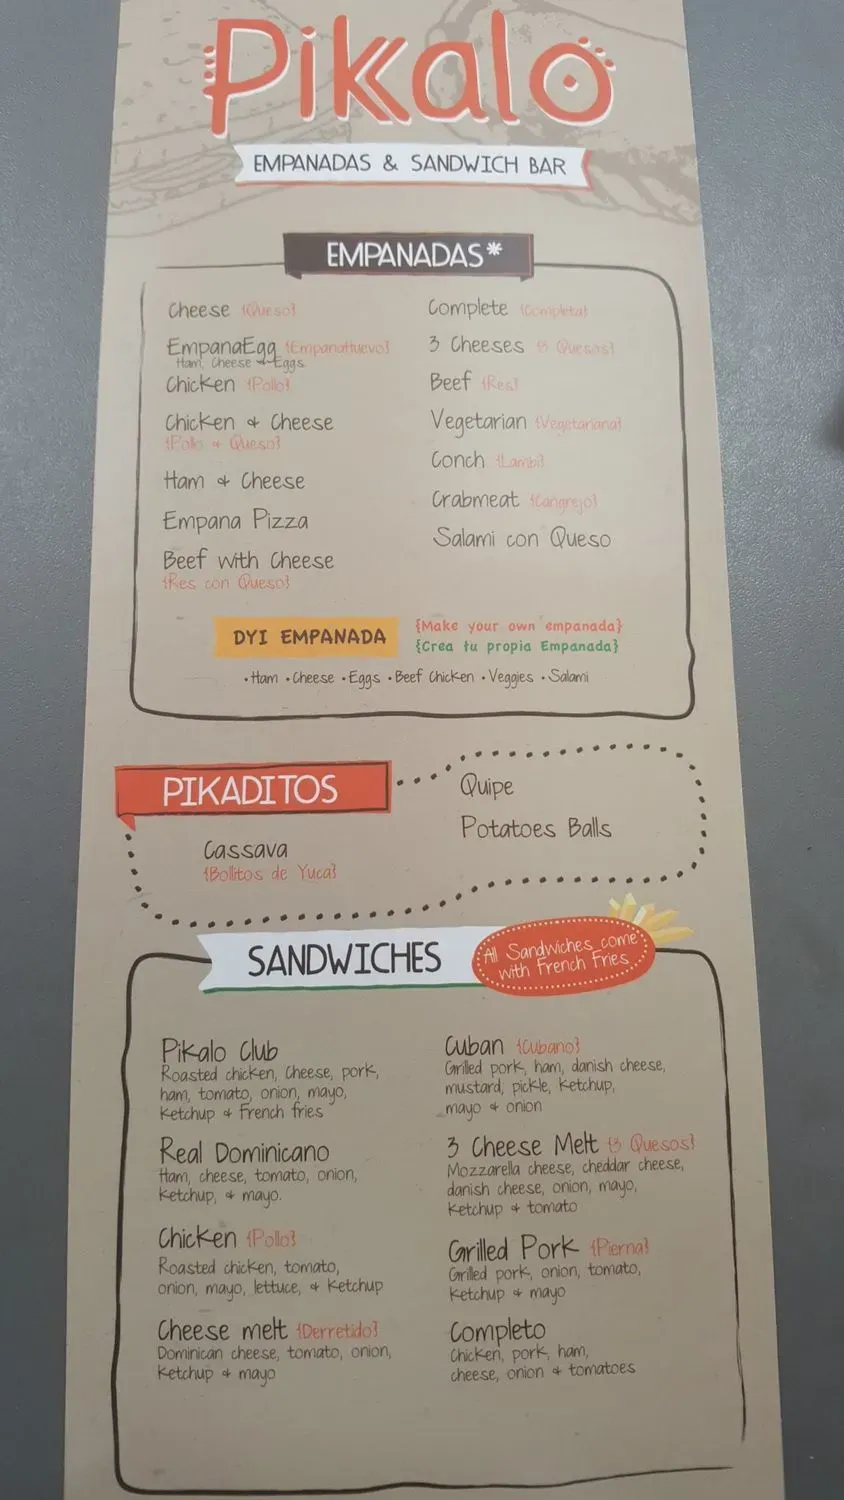 Pikalo
EMPANADAS & SANDWICH BAR
EMPANADAS*
Cheese {Queso}
EmpanaEgg {EmpanaHuevo}
Ham, Cheese & Eggs
Chicken {Pollo}
Chicken & Cheese
{Pollo & Queso}
Ham & Cheese
Empana Pizza
Beef with Cheese
{Res con Queso}
Complete {Completa}
3 Cheeses {3 Quesos}
Beef {Res}
Vegetarian {Vegetariana}
Conch {Lambi}
Crabmeat {Cangrejo}
Salami con Queso
DYI EMPANADA
{Make your own empanada}
{Crea tu propia Empanada}
•Ham •Cheese •Eggs •Beef Chicken •Veggies •Salami
PIKADITOS
Cassava
{Bollitos de Yuca}
Quipe
Potatoes Balls
SANDWICHES
All Sandwiches come
with French Fries
Pikalo Club
Roasted chicken, Cheese, pork,
ham, tomato, onion, mayo,
Ketchup & French fries
Real Dominicano
Ham, cheese, tomato, onion,
Ketchup, & mayo.
Chicken {Pollo}
Roasted chicken, tomato,
onion, mayo, lettuce, & Ketchup
Cheese melt {Derretido}
Dominican cheese, tomato, onion,
Ketchup & mayo
Cuban {Cubano}
Grilled pork, ham, danish cheese,
mustard, pickle, Ketchup,
mayo & onion
3 Cheese Melt {3 Quesos}
Mozzarella cheese, cheddar cheese,
danish cheese, onion, mayo,
Ketchup & tomato
Grilled Pork {Pierna}
Grilled pork, onion, tomato,
Ketchup & mayo
Completo
Chicken, pork, ham,
cheese, onion & tomatoes